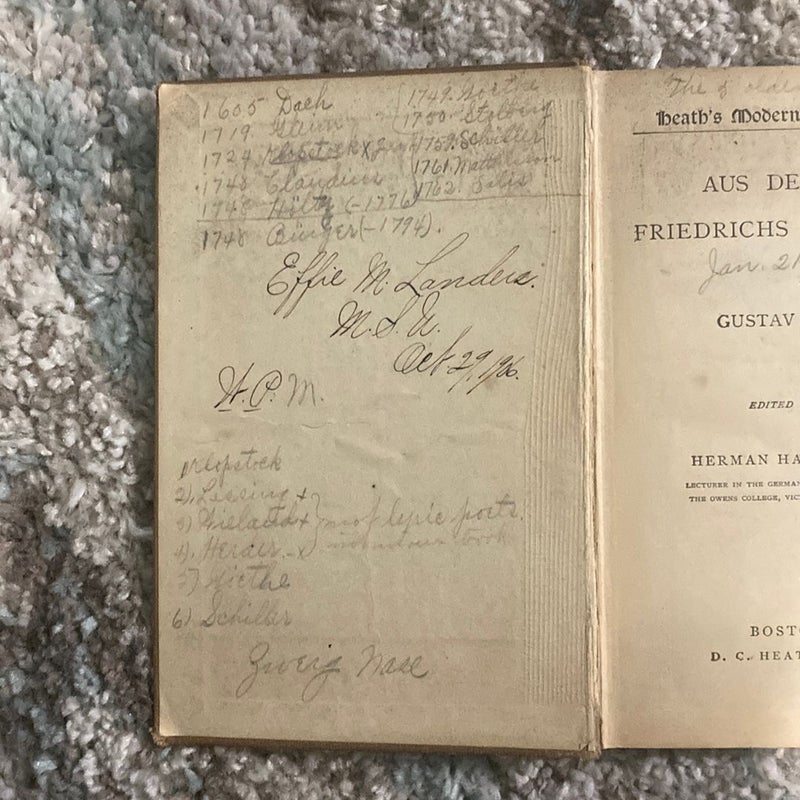 1605 Dach
1719. Gleim
1724 Klopstock x
1740 Claudius
1748 Hölty (-1776)
1748 Bürger (-1794).
1749. Goethe
1750. Stolberg
1759. Schiller
1761. Matthisson
1762. Salis
Effie M. Landers.
M.S.U.
Oct 29, 1906.
H.P.M.
1) Klopstock
2) Lessing +
3) Wieland + } not lyric poets.
4). Herder - x book
5) Goethe
6) Schiller
Zwerg Nase
The 5 older
Heath's Modern
AUS DE
FRIEDRICHS
Jan. 21
GUSTAV
EDITED
HERMAN HA
LECTURER IN THE GERMAN
THE OWENS COLLEGE, VIC
BOSTO
D. C. HEAT